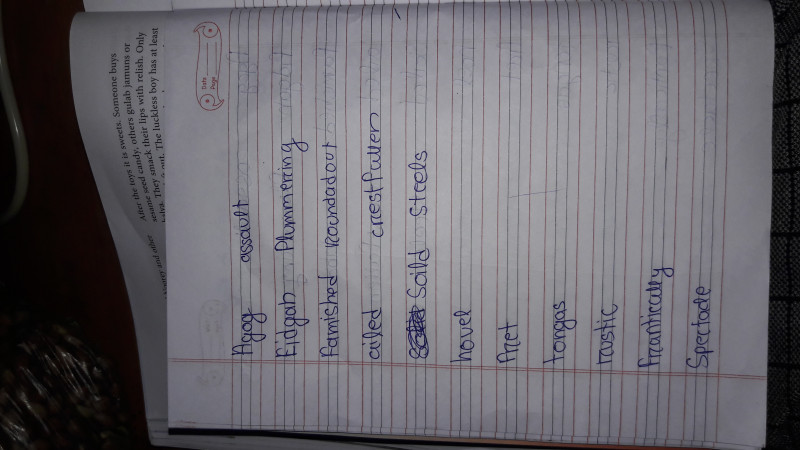 After the toys it is sweets. Someone buys
sesame seed candy, others gulab jamuns or
They smack their lips with relish. Only
out. The luckless boy has at least
and other
Date
Page
Agog assault
Eidgah Plummering
Famished roundadout
ailed crrestfullen
Soild steels
hovel
fret
tongas
rustic
frantically
Spectacle